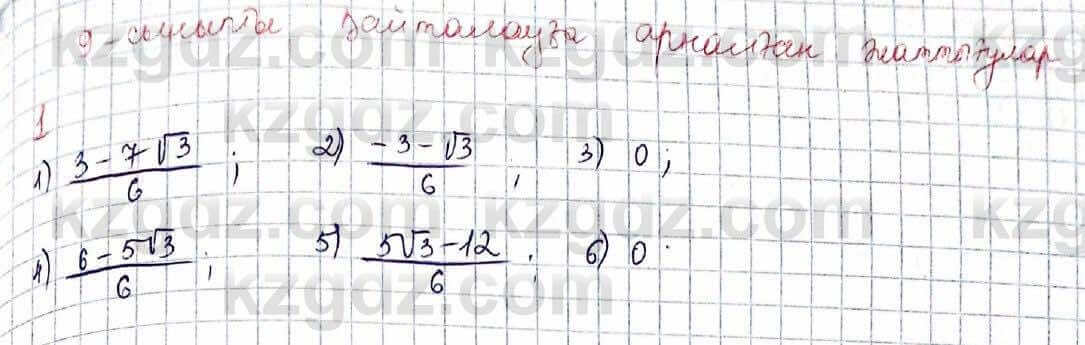 9-сыныпты қайталауға арналған жаттығулар
1
1) (3 - 7√3)/6 ; 2) (-3 - √3)/6 ; 3) 0 ;
4) (6 - 5√3)/6 ; 5) (5√3 - 12)/6 ; 6) 0 .
kzgdz.com kzgdz.com kzgdz.com